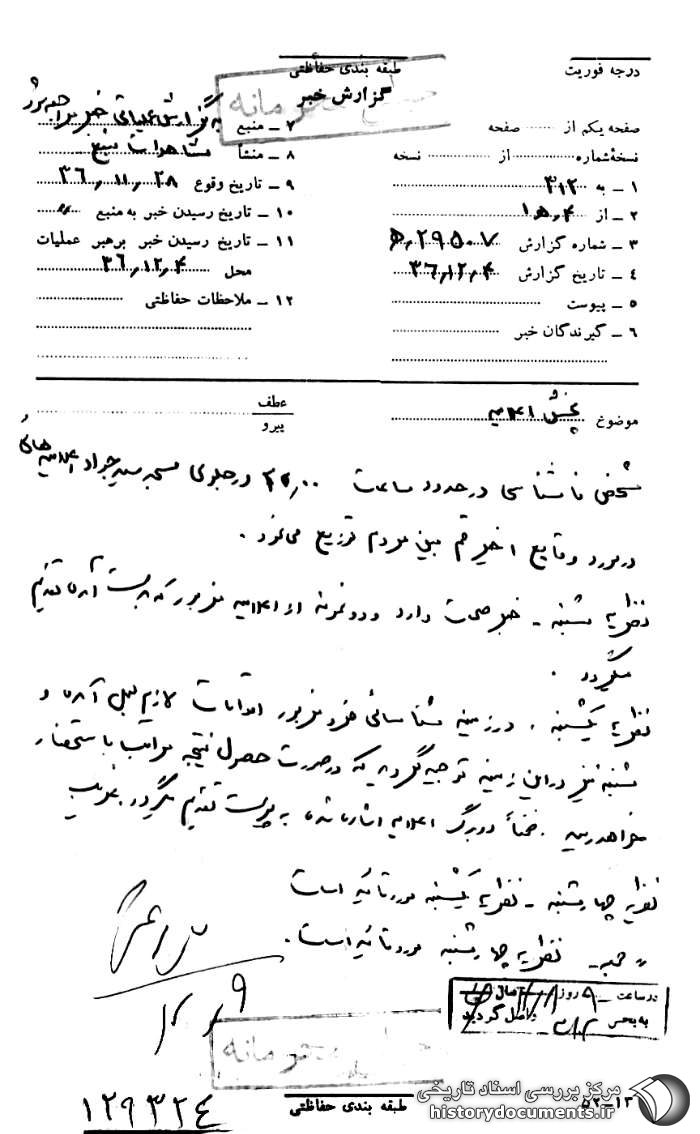 درجه فوریت
طبقه بندی حفاظتی
گزارش خبر
خیلی محرمانه
صفحه یکم از ........ صفحه
نسخهٔ شماره ........ از ........ نسخه
۱ ــ به ۳۱۲
۲ ــ از ۱۵ﻫ۴
۳ ــ شماره گزارش ۲۹۵۰۷ / ﻫ
۴ ــ تاریخ گزارش ۳۶٫۱۲٫۴
۵ ــ پیوست
۶ ــ گیرندگان خبر
۷ ــ منبع به گزارش عملیاتی خبر مراجعه شود
۸ ــ منشأ مشاهدات منبع
۹ ــ تاریخ وقوع ۳۶٫۱۱٫۲۸
۱۰ ــ تاریخ رسیدن خبر به منبع "
۱۱ ــ تاریخ رسیدن خبر برهبر عملیات
محل ۳۶٫۱۲٫۴
۱۲ ــ ملاحظات حفاظتی
موضوع پخش اعلامیه
عطف
پیرو
شخص ناشناسی در حدود ساعت ۲۲٫۰۰ در جلوی مسجد سیدجواد اعلامیه‌هائی
درمورد وقایع اخیر قم بین مردم توزیع می‌نمود .
نظریه شنبه ـ خبر صحت دارد و دو نمونه از اعلامیه مزبور که بدست آمده تقدیم
میگردد .
نظریه یکشنبه . در زمینه شناسائی فرد مزبور اقدامات لازم بعمل آمده و
شنبه نیز در این زمینه توجیه گردیده که در صورت حصول نتیجه مراتب باستحضار
خواهد رسید . ضمناً دو برگ اعلامیه اشاره شده به پیوست تقدیم میگردد.
نظریه چهارشنبه ـ نظریه یکشنبه مورد تائید است
" جمعه ـ نظریه چهارشنبه مورد تائید است .
۱۲٫۹
در ساعت ۹ روز
به بخش ۳۱۲ واصل گردید
خیلی محرمانه
طبقه بندی حفاظتی
۱۲۹۳۲۴
۵۲ــ۱۳
مرکز بررسی اسناد تاریخی
historydocuments.ir